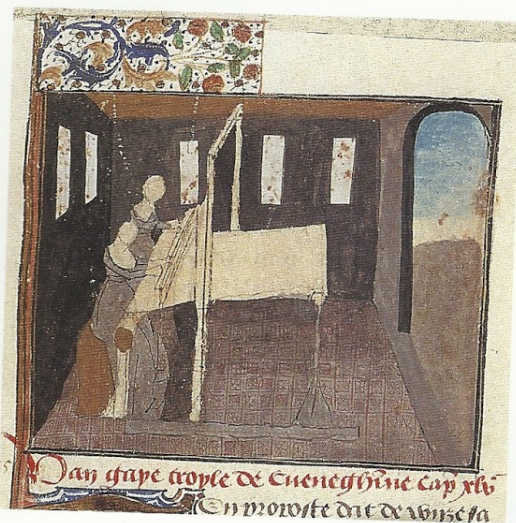 Van gape troyle de Cueneghine cap xlv
En prowoste dit de wyze sa